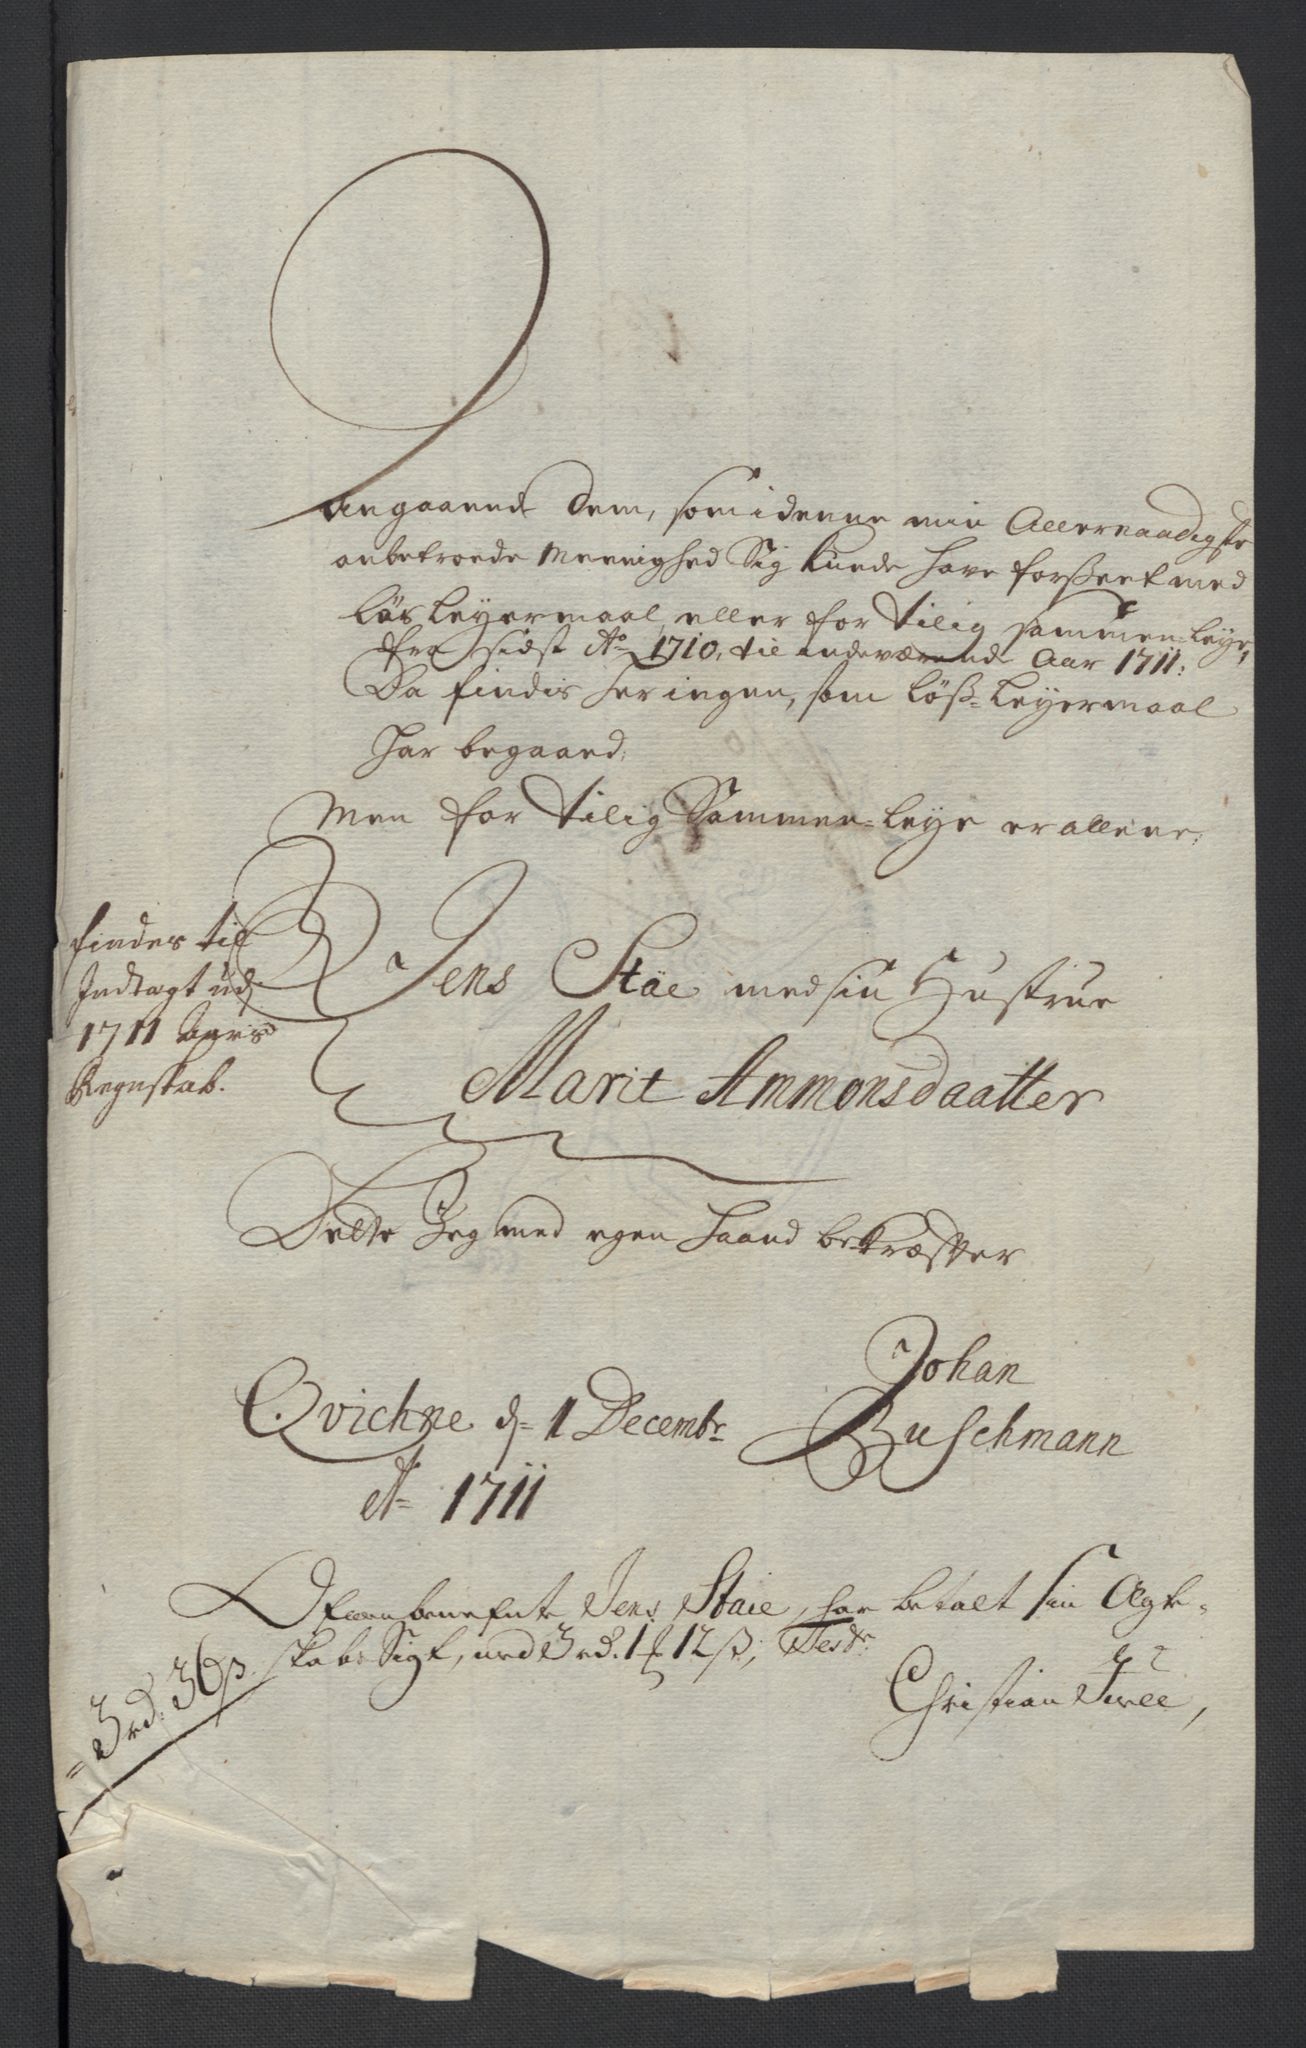 Angaaende dem, som i denne min Allernaadigste
anbetroede Menighed Sig kunde have forsseet med
løs leyermaal, eller for tilig sammen-leye,
fra sidst Ao 1710, til indeværende Aar 1711:
Da findis her ingen, som löß-leyermaal
har begaaed;
Men for tilig Sammen-leye er allene,
findes til
Indtagt udj
1711 Aars
Regnskab.
Jens Stäe med sin Hustrue
Marit Ammonsdaatter
Dette Jeg med egen haand bekræffter
Qvichne d= 1 Decembr
A= 1711
Johan
Buschmann
Ofvenbenefnte Jens Staie, har betalt sin Ægte-
skabs Sigt, med 3 rd. 1 ₰ 12 ß, Test:
Christian
= 3 rd: 36 ß.